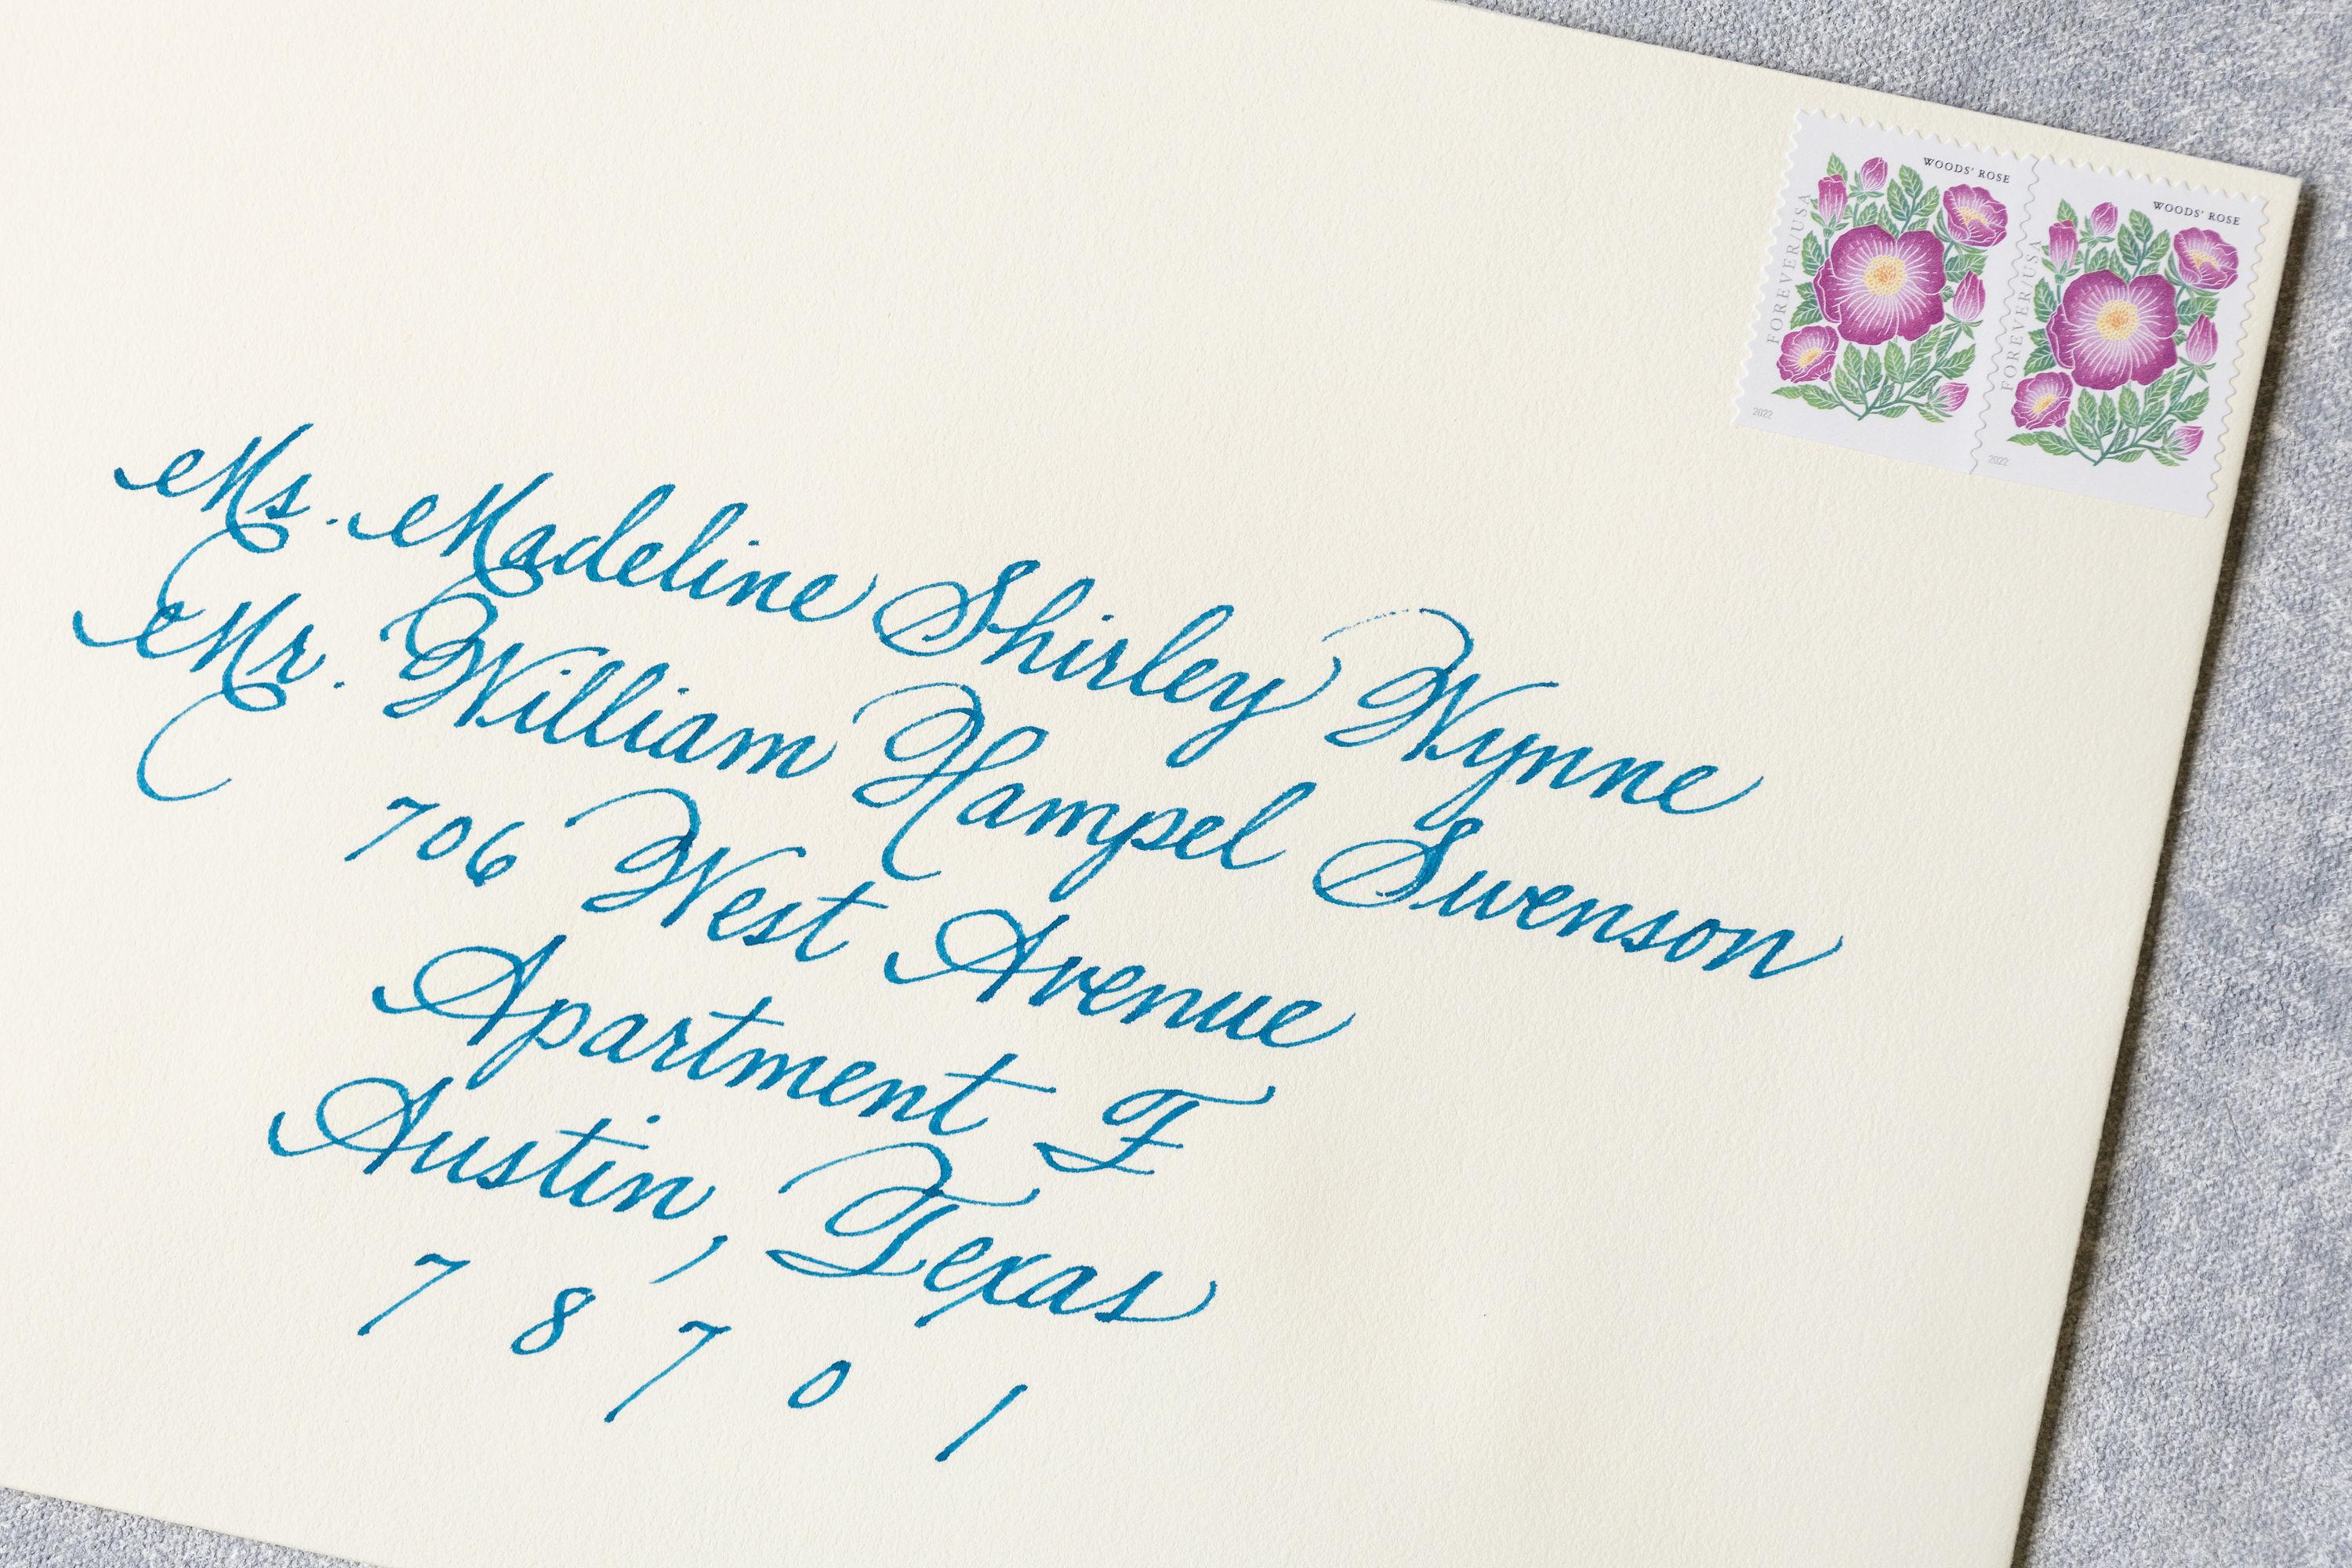 WOODS' ROSE
FOREVER/USA
2022
WOODS' ROSE
FOREVER/USA
2022
Ms. Madeline Shirley Wynne
Mr. William Hampel Swenson
706 West Avenue
Apartment F
Austin, Texas
7 8 7 0 1